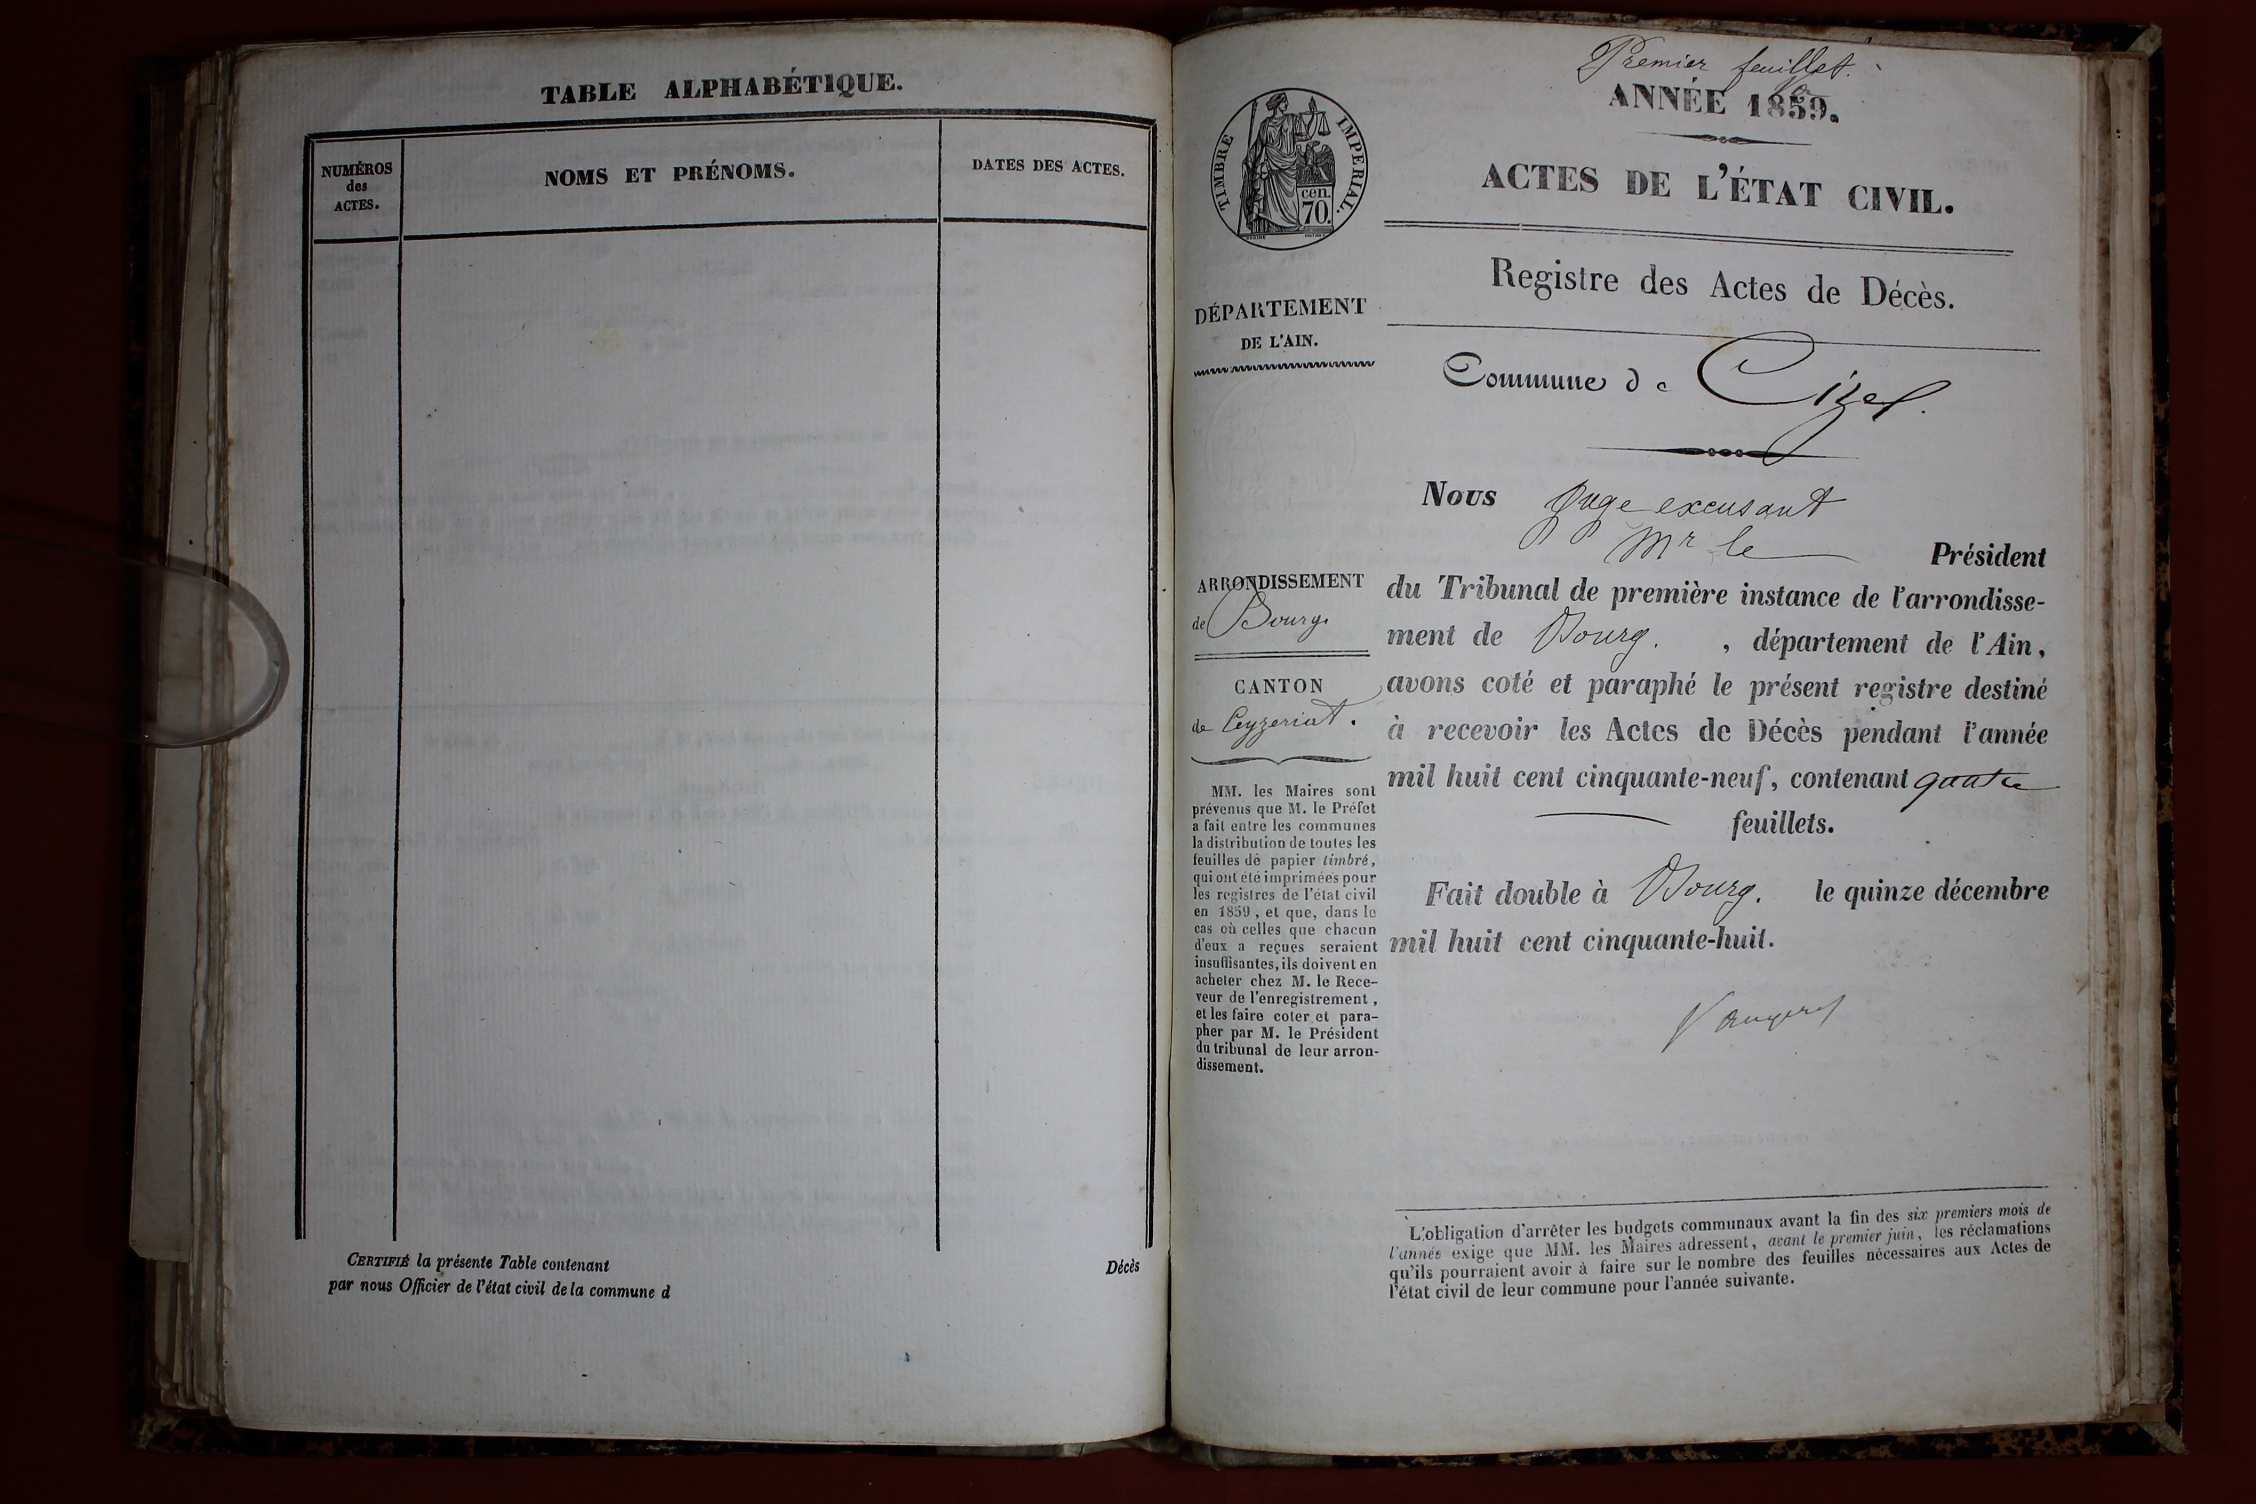 TABLE ALPHABÉTIQUE.
NUMÉROS
des
ACTES.
NOMS ET PRÉNOMS.
DATES DES ACTES.
CERTIFIÉ la présente Table contenant
Décès
par nous Officier de l'état civil de la commune d
Premier feuillet.
ANNÉE 1859.
TIMBRE IMPERIAL.
cen.
70.
ACTES DE L'ÉTAT CIVIL.
Registre des Actes de Décès.
DÉPARTEMENT
DE L'AIN.
Commune de Cize
Nous Juge excusant
Mr le Président
ARRONDISSEMENT
de Bourg
CANTON
de Ceyzeriat.
du Tribunal de première instance de l'arrondisse-
ment de Bourg. , département de l'Ain,
avons coté et paraphé le présent registre destiné
à recevoir les Actes de Décès pendant l'année
mil huit cent cinquante-neuf, contenant quatre
feuillets.
Fait double à Bourg. le quinze décembre
mil huit cent cinquante-huit.
MM. les Maires sont
prévenus que M. le Préfet
a fait entre les communes
la distribution de toutes les
feuilles de papier timbré,
qui ont été imprimées pour
les registres de l'état civil
en 1859, et que, dans le
cas où celles que chacun
d'eux a reçues seraient
insuffisantes, ils doivent en
acheter chez M. le Rece-
veur de l'enregistrement,
et les faire coter et para-
pher par M. le Président
du tribunal de leur arron-
dissement.
L'obligation d'arrêter les budgets communaux avant la fin des six premiers mois de
l'année exige que MM. les Maires adressent, avant le premier juin, les réclamations
qu'ils pourraient avoir à faire sur le nombre des feuilles nécessaires aux Actes de
l'état civil de leur commune pour l'année suivante.